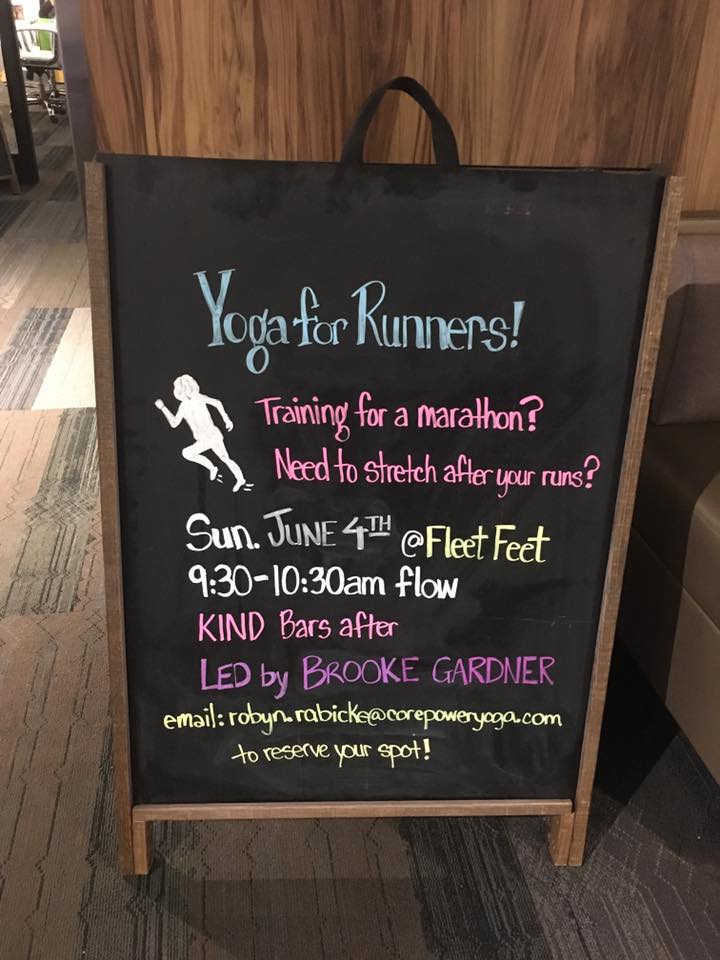 Yoga for Runners!
Training for a marathon?
Need to stretch after your runs?
Sun. JUNE 4TH @Fleet Feet
9:30-10:30am flow
KIND Bars after
LED by BROOKE GARDNER
email: robyn.rabicke@corepoweryoga.com
to reserve your spot!